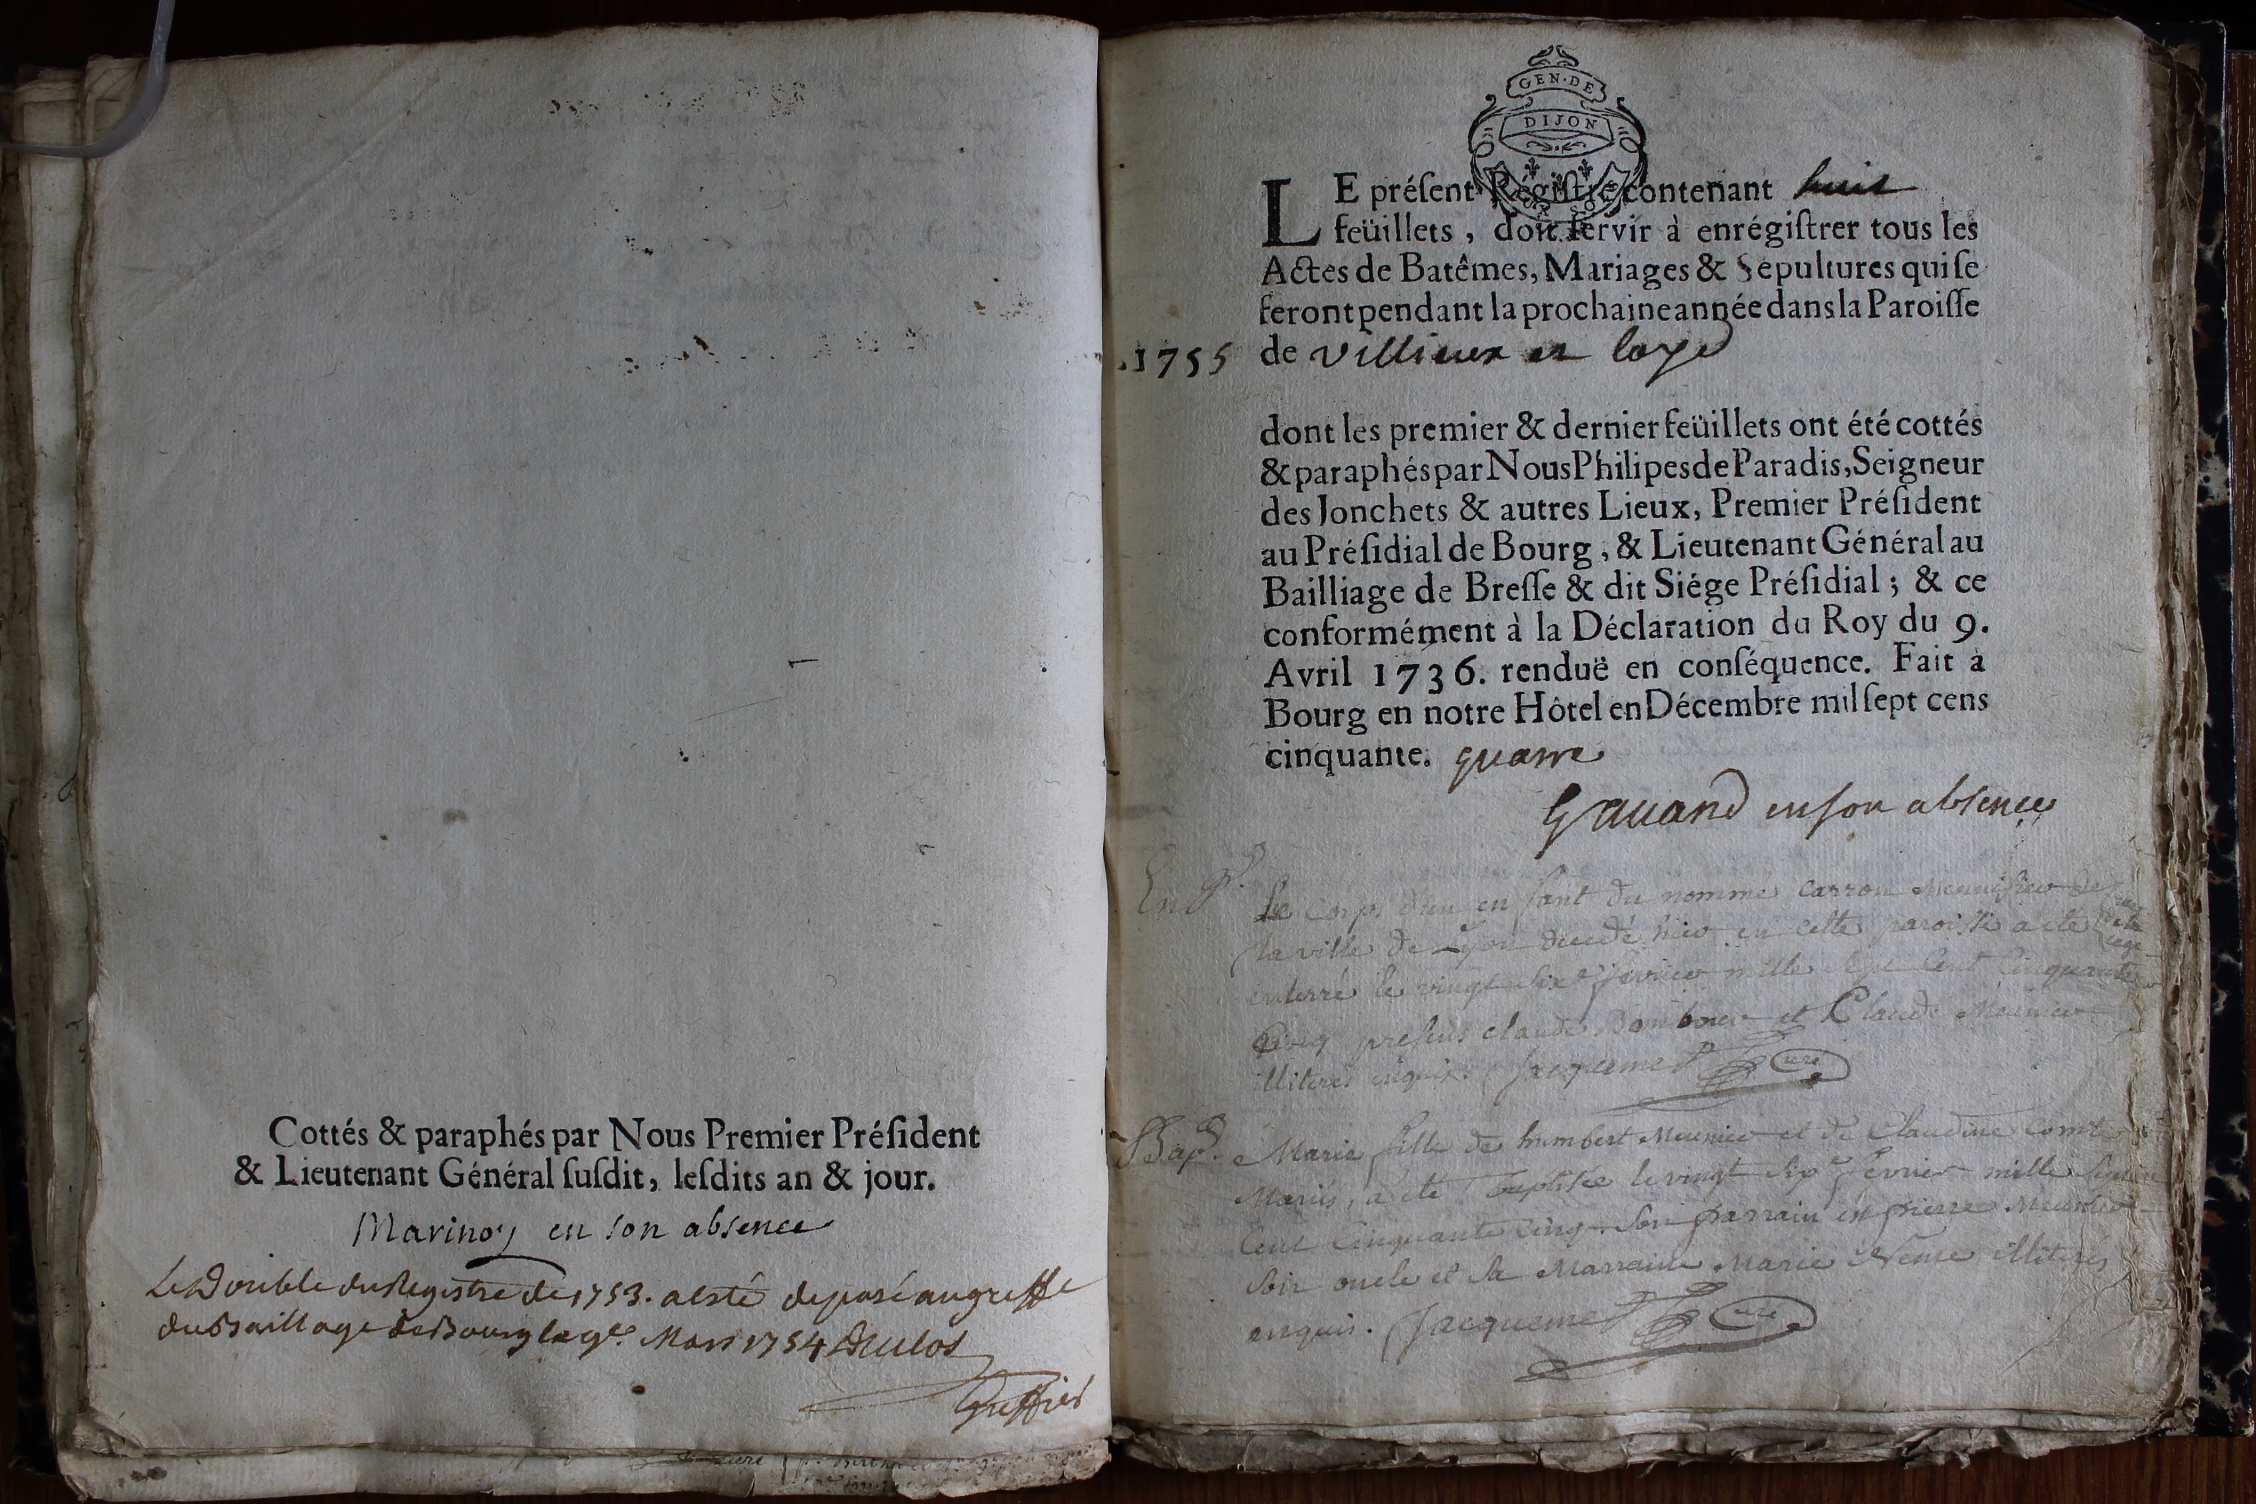 Cottés & paraphés par Nous Premier Préſident
& Lieutenant Général ſuſdit, leſdits an & jour.
en son absence
Le Double du Registre de 1753. a esté deposé au greffe
du Baillage de Bourg le Mars 1754
Greffier
GEN·DE
DIJON
LE préſent Régiſtre contenant huit
feüillets, doit ſervir à enrégiſtrer tous les
Actes de Batêmes, Mariages & Sépultures qui ſe
feront pendant la prochaine année dans la Paroiſſe
.1755 de Villieux et loye
dont les premier & dernier feüillets ont été cottés
& paraphés par Nous Philipes de Paradis, Seigneur
des Jonchets & autres Lieux, Premier Préſident
au Préſidial de Bourg, & Lieutenant Général au
Bailliage de Breſſe & dit Siége Préſidial; & ce
conformément à la Déclaration du Roy du 9.
Avril 1736. renduë en conſéquence. Fait à
Bourg en notre Hôtel en Décembre mil ſept cens
cinquante. quatre
en son absence
Le Corps d'un enfant du nommé Carron de
la ville de Lyon decedé hier en cette paroisse a eté
enterré le vingt six fevrier mille sept Cent Cinquante
Cinq presens claude et Claude Meunier
illiterés enquis. Jacquemet curé
Bap. Marie fille de humbert Meunier et de Claudine Comte
Mariés, a eté baptisée le vingt six fevrier mille sept
Cent Cinquante Cinq. Son parrain est pierre Meunier
Son oncle et Sa Marraine Marie illiterés
enquis. Jacquemet curé